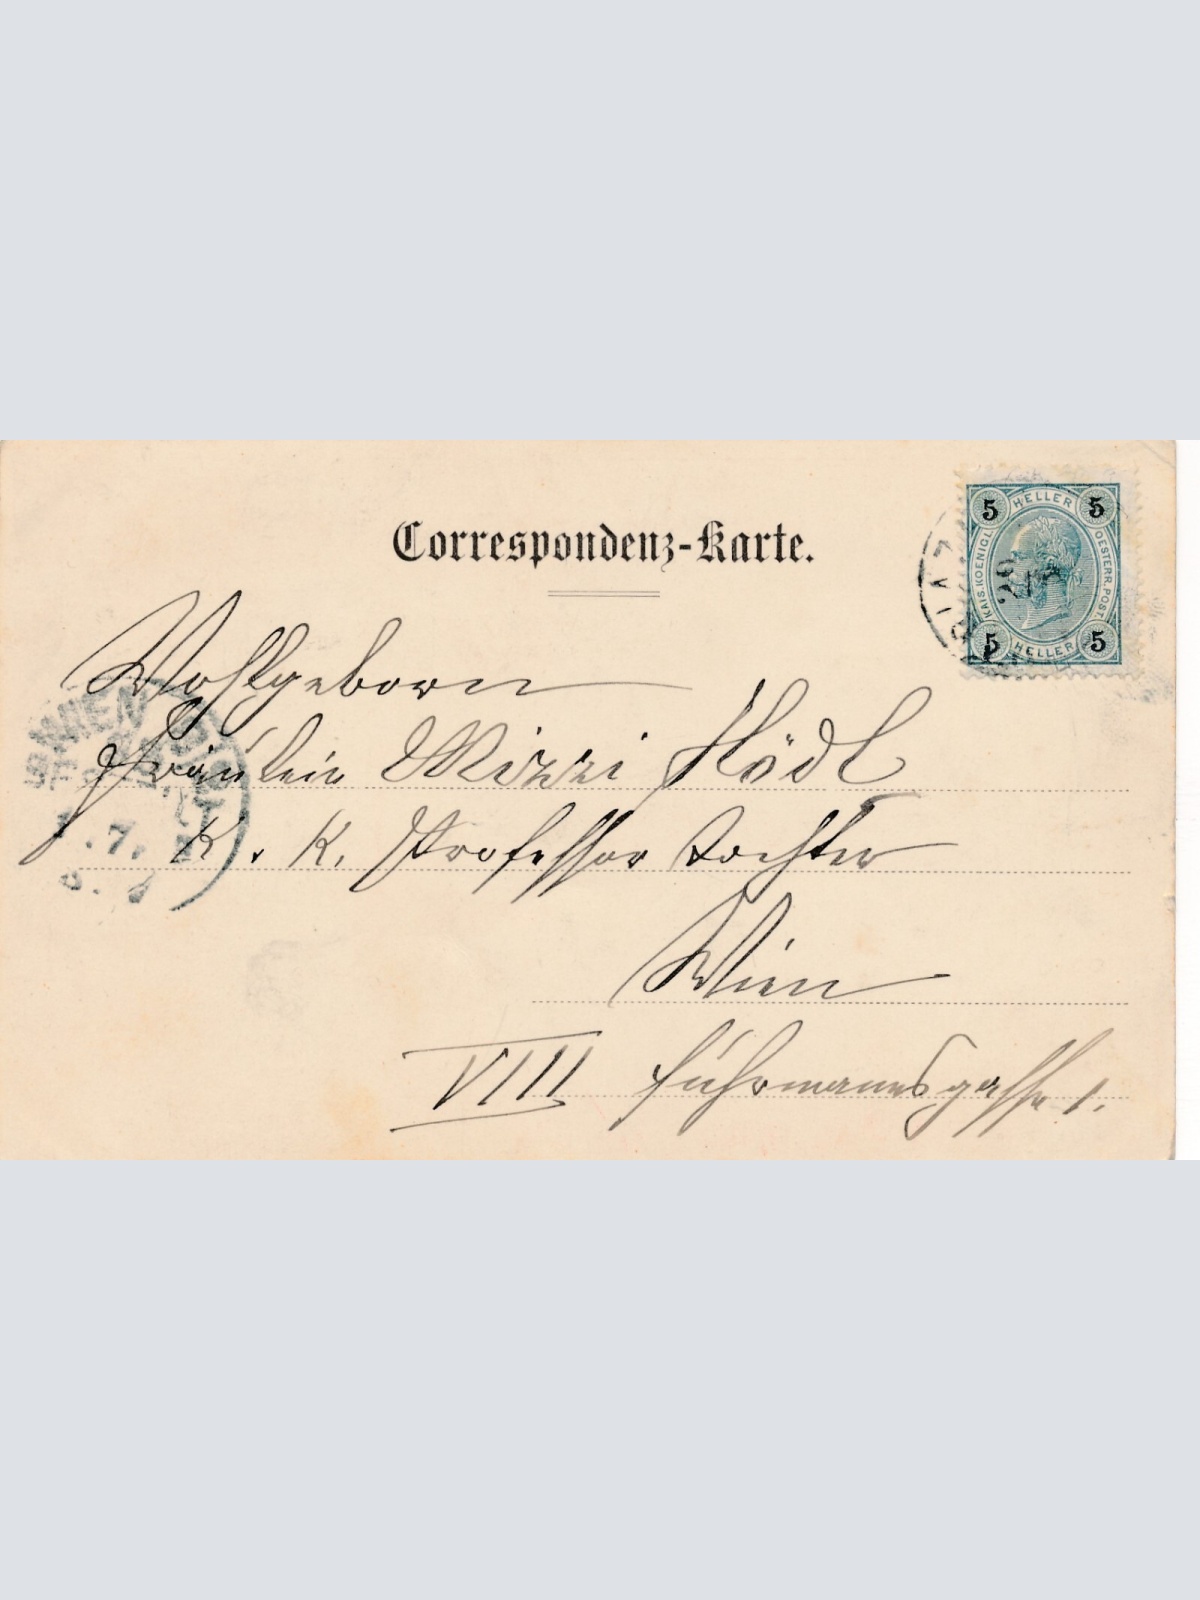 Correspondenz-Karte.
5 HELLER 5
KAIS. KOENIGL. OESTERR. POST
5 HELLER 5
Wohlgeborn
Fräulein Mizzi Hödl
K. K. Professor tochter
Wien
VIII Fuhrmannsgasse 1.
WIEN
7.